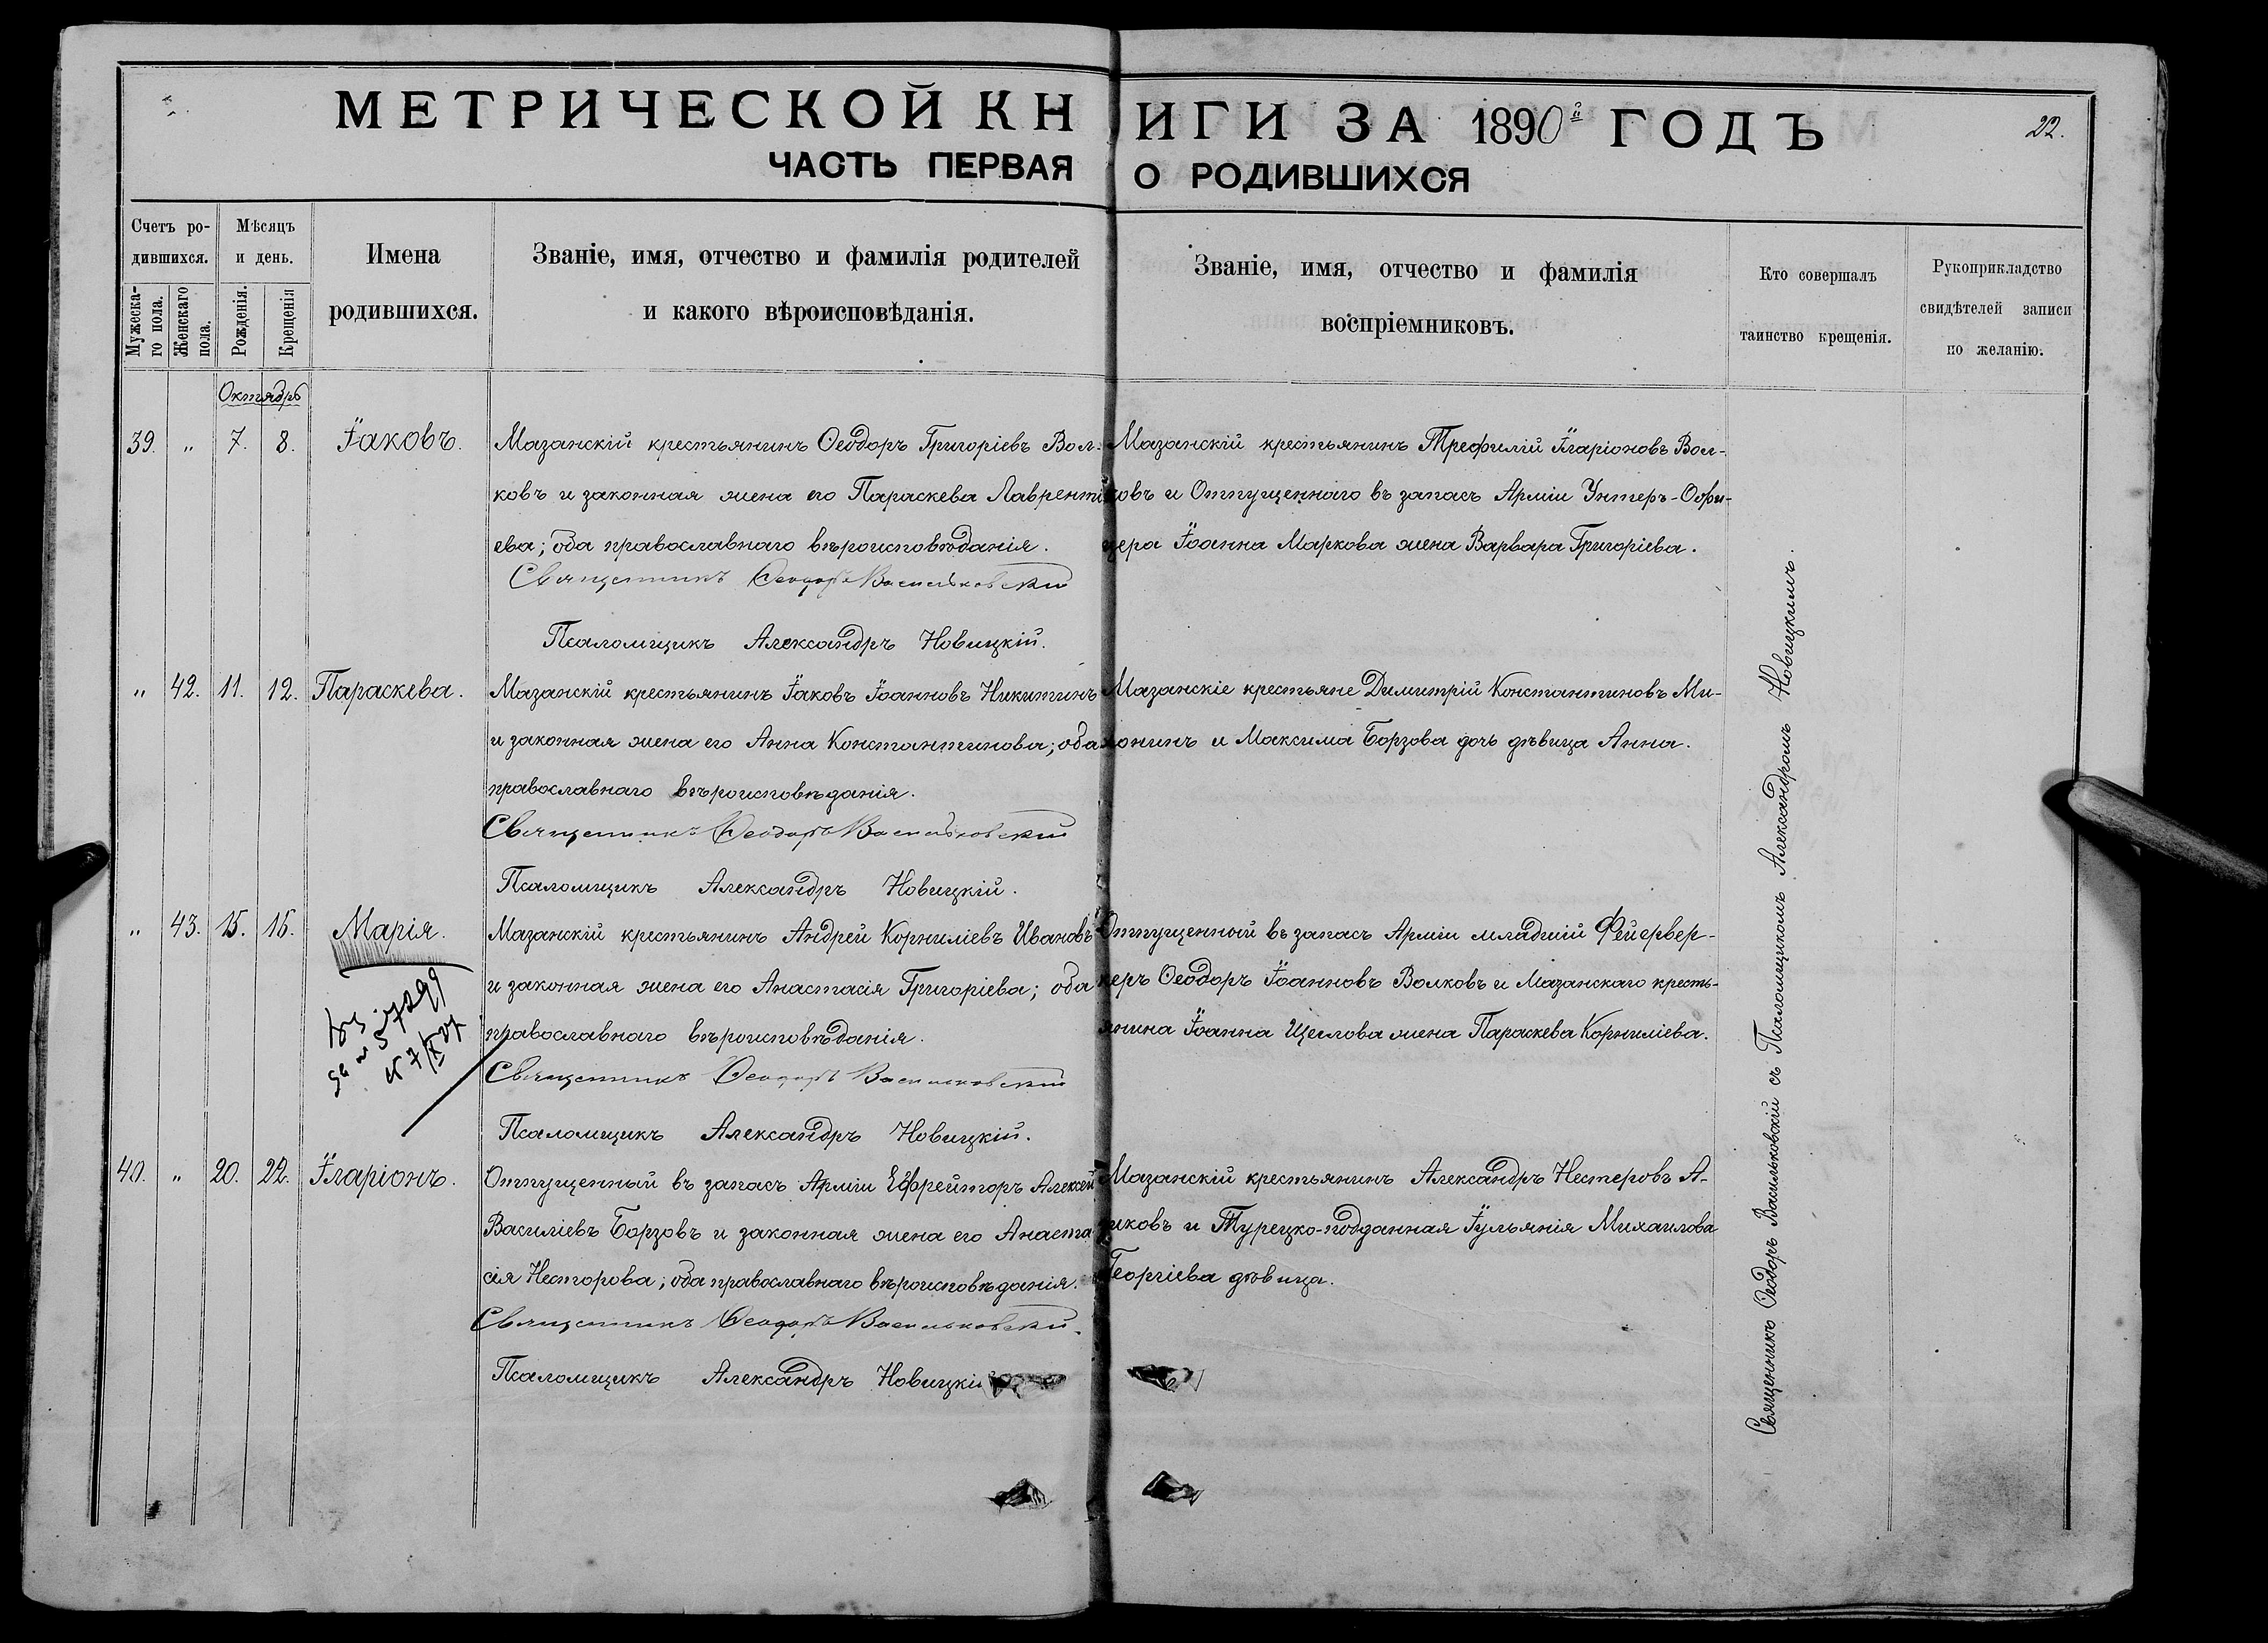 МЕТРИЧЕСКОЙ КНИГИ ЗА 1890й ГОДЪ
22.
ЧАСТЬ ПЕРВАЯ О РОДИВШИХСЯ
Счетъ ро-
дившихся.
Мужеска-
го пола.
Женскаго
пола.
Мѣсяцъ
и день.
Рожденія.
Крещенія
Имена
родившихся.
Званіе, имя, отчество и фамилія родителей
и какого вѣроисповѣданія.
Званіе, имя, отчество и фамилія
воспріемниковъ.
Кто совершалъ
таинство крещенія.
Рукоприкладство
свидѣтелей записи
по желанію.
Октядрь
39. „ 7. 8. Іаковъ.
Мазанскій крестьянинъ Ѳеодоръ Григоріевъ Вол-
ковъ и законная жена его Параскева Лаврентi
ева; оба православнаго вѣроисповѣданія.
Священникъ Ѳеодоръ Васильковскій
Псаломщикъ Александръ Новицкій.
Мазанскій крестьянинъ Трефилій Іларіоновъ Вол-
ковъ и Отпущеннаго въ запасъ Арміи Унтеръ-Офи-
цера Іоанна Маркова жена Варвара Григоріева.
„ 42. 11. 12. Параскева.
Мазанскій крестьянинъ Іаковъ Іоанновъ Никитинъ
и законная жена его Анна Константинова; оба
православнаго вѣроисповѣданія.
Священникъ Ѳеодоръ Васильковскій
Псаломщикъ Александръ Новицкій.
Мазанскіе крестьяне Димитрій Константиновъ Ми-
хонинъ и Максима Борзова дочь дѣвица Анна.
„ 43. 15. 15. Марія.
Мазанскій крестьянинъ Андрей Корниліевъ Ивановъ
и законная жена его Анастасія Григоріева; оба
православнаго вѣроисповѣданія.
Священникъ Ѳеодоръ Васильковскій
Псаломщикъ Александръ Новицкій.
Отпущенной въ запасъ Арміи младшій Фейервер-
керъ Ѳеодоръ Іоанновъ Волковъ и Мазанскаго кресть-
янина Іоанна Щеглова жена Параскева Корниліева.
40. „ 20. 22. Іларіонъ.
Отпущенный въ запасъ Арміи Ефрейторъ Алексей
Василіевъ Борзовъ и законная жена его Анаста
сія Несторова; оба православнаго вѣроисповѣданія.
Священникъ Ѳеодоръ Васильковскій.
Псаломщикъ Александръ Новицкій
Мазанскій крестьянинъ Александръ Нестеровъ А-
Турецко-подданная Іульянія Михаилова
Георгіева дѣвица.
Священникъ Ѳеодоръ Васильковскій съ Псаломщикомъ Александромъ Новицкимъ.